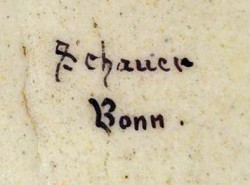 Schauer
Bonn.